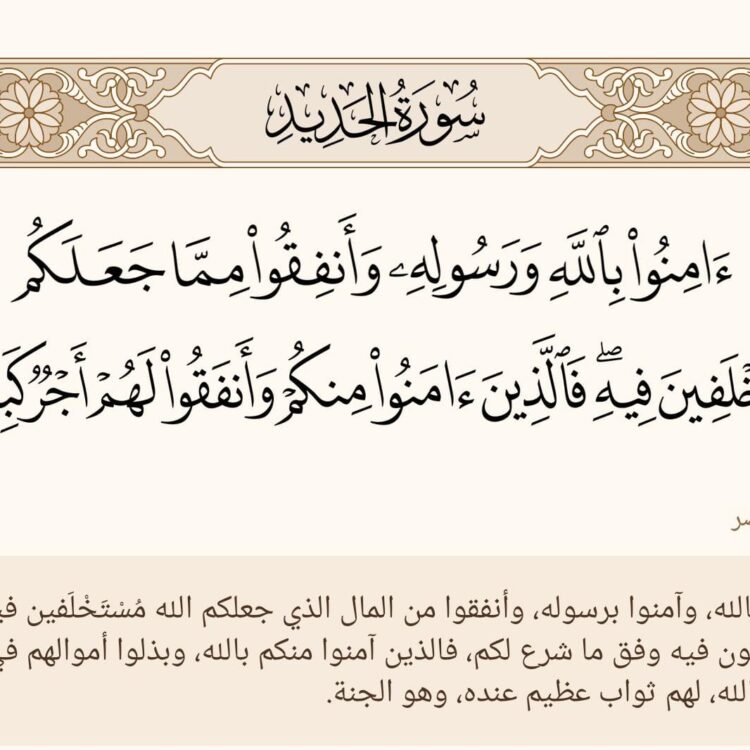 سُورَةُ الحَدِيدِ
ءَامِنُوا۟ بِٱللَّهِ وَرَسُولِهِۦ وَأَنفِقُوا۟ مِمَّا جَعَلَكُم
فِيهِۖ فَٱلَّذِينَ ءَامَنُوا۟ مِنكُمْ وَأَنفَقُوا۟ لَهُمْ أَجْرٌۭ
وآمنوا برسوله، وأنفقوا من المال الذي جعلكم الله مُسْتَخْلَفين
فيه وفق ما شرع لكم، فالذين آمنوا منكم بالله، وبذلوا أموالهم في
لهم ثواب عظيم عنده، وهو الجنة.